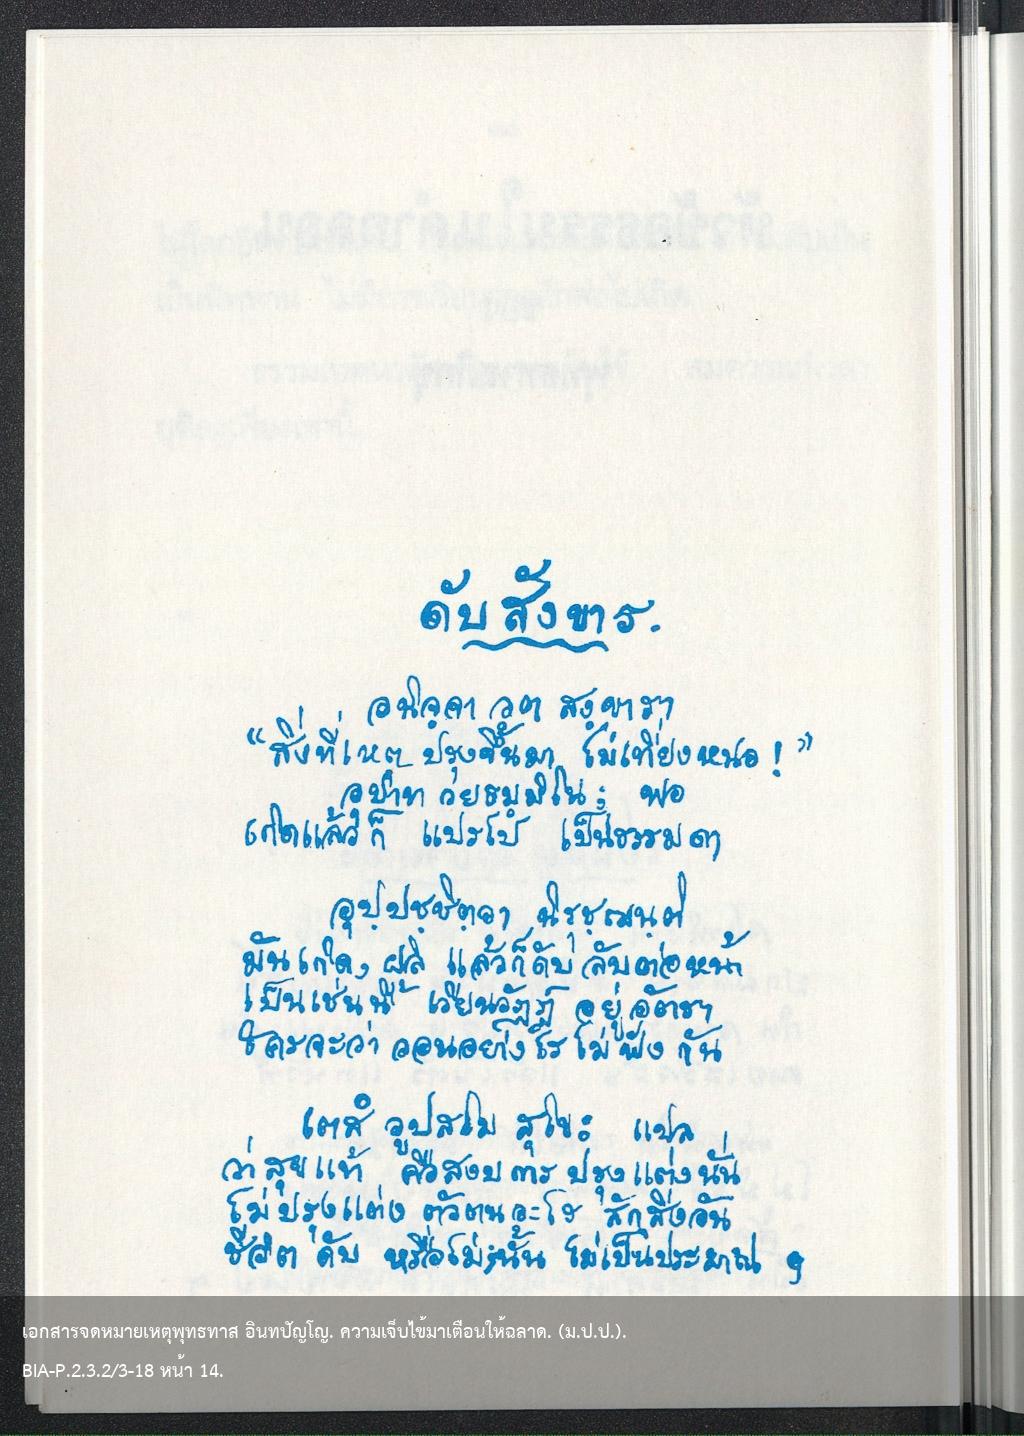 ดับสังขาร.
อนิจฺจา วต สงฺขารา
"สิ่งที่เหตุ ปรุงขึ้นมา ไม่เที่ยงหนอ!"
อุปฺปาท วยธมฺมิโน; พอ
เกิดแล้วก็ แปรไป เป็นธรรมดา
อุปฺปชฺชิตฺวา นิรุชฺฌนฺติ
มันเกิด, ผลิ แล้วก็ดับ ลับต่อหน้า
เป็นเช่นนี้ เวียนวัฏฏ์ อยู่อัตรา
ใครจะว่า วอนอย่างไร ไม่ฟังกัน
เตสํ วูปสโม สุโข; แปล
ว่าสุขแท้ คือสงบ การปรุงแต่งนั่น
ไม่ปรุงแต่ง ตัวตนอะไร สักสิ่งอัน
ชีวิตดับ หรือไม่นั้น ไม่เป็นประมาณ ๆ
เอกสารจดหมายเหตุพุทธทาส อินทปัญโญ. ความเจ็บไข้มาเตือนให้ฉลาด. (ม.ป.ป.).
BIA-P.2.3.2/3-18 หน้า 14.